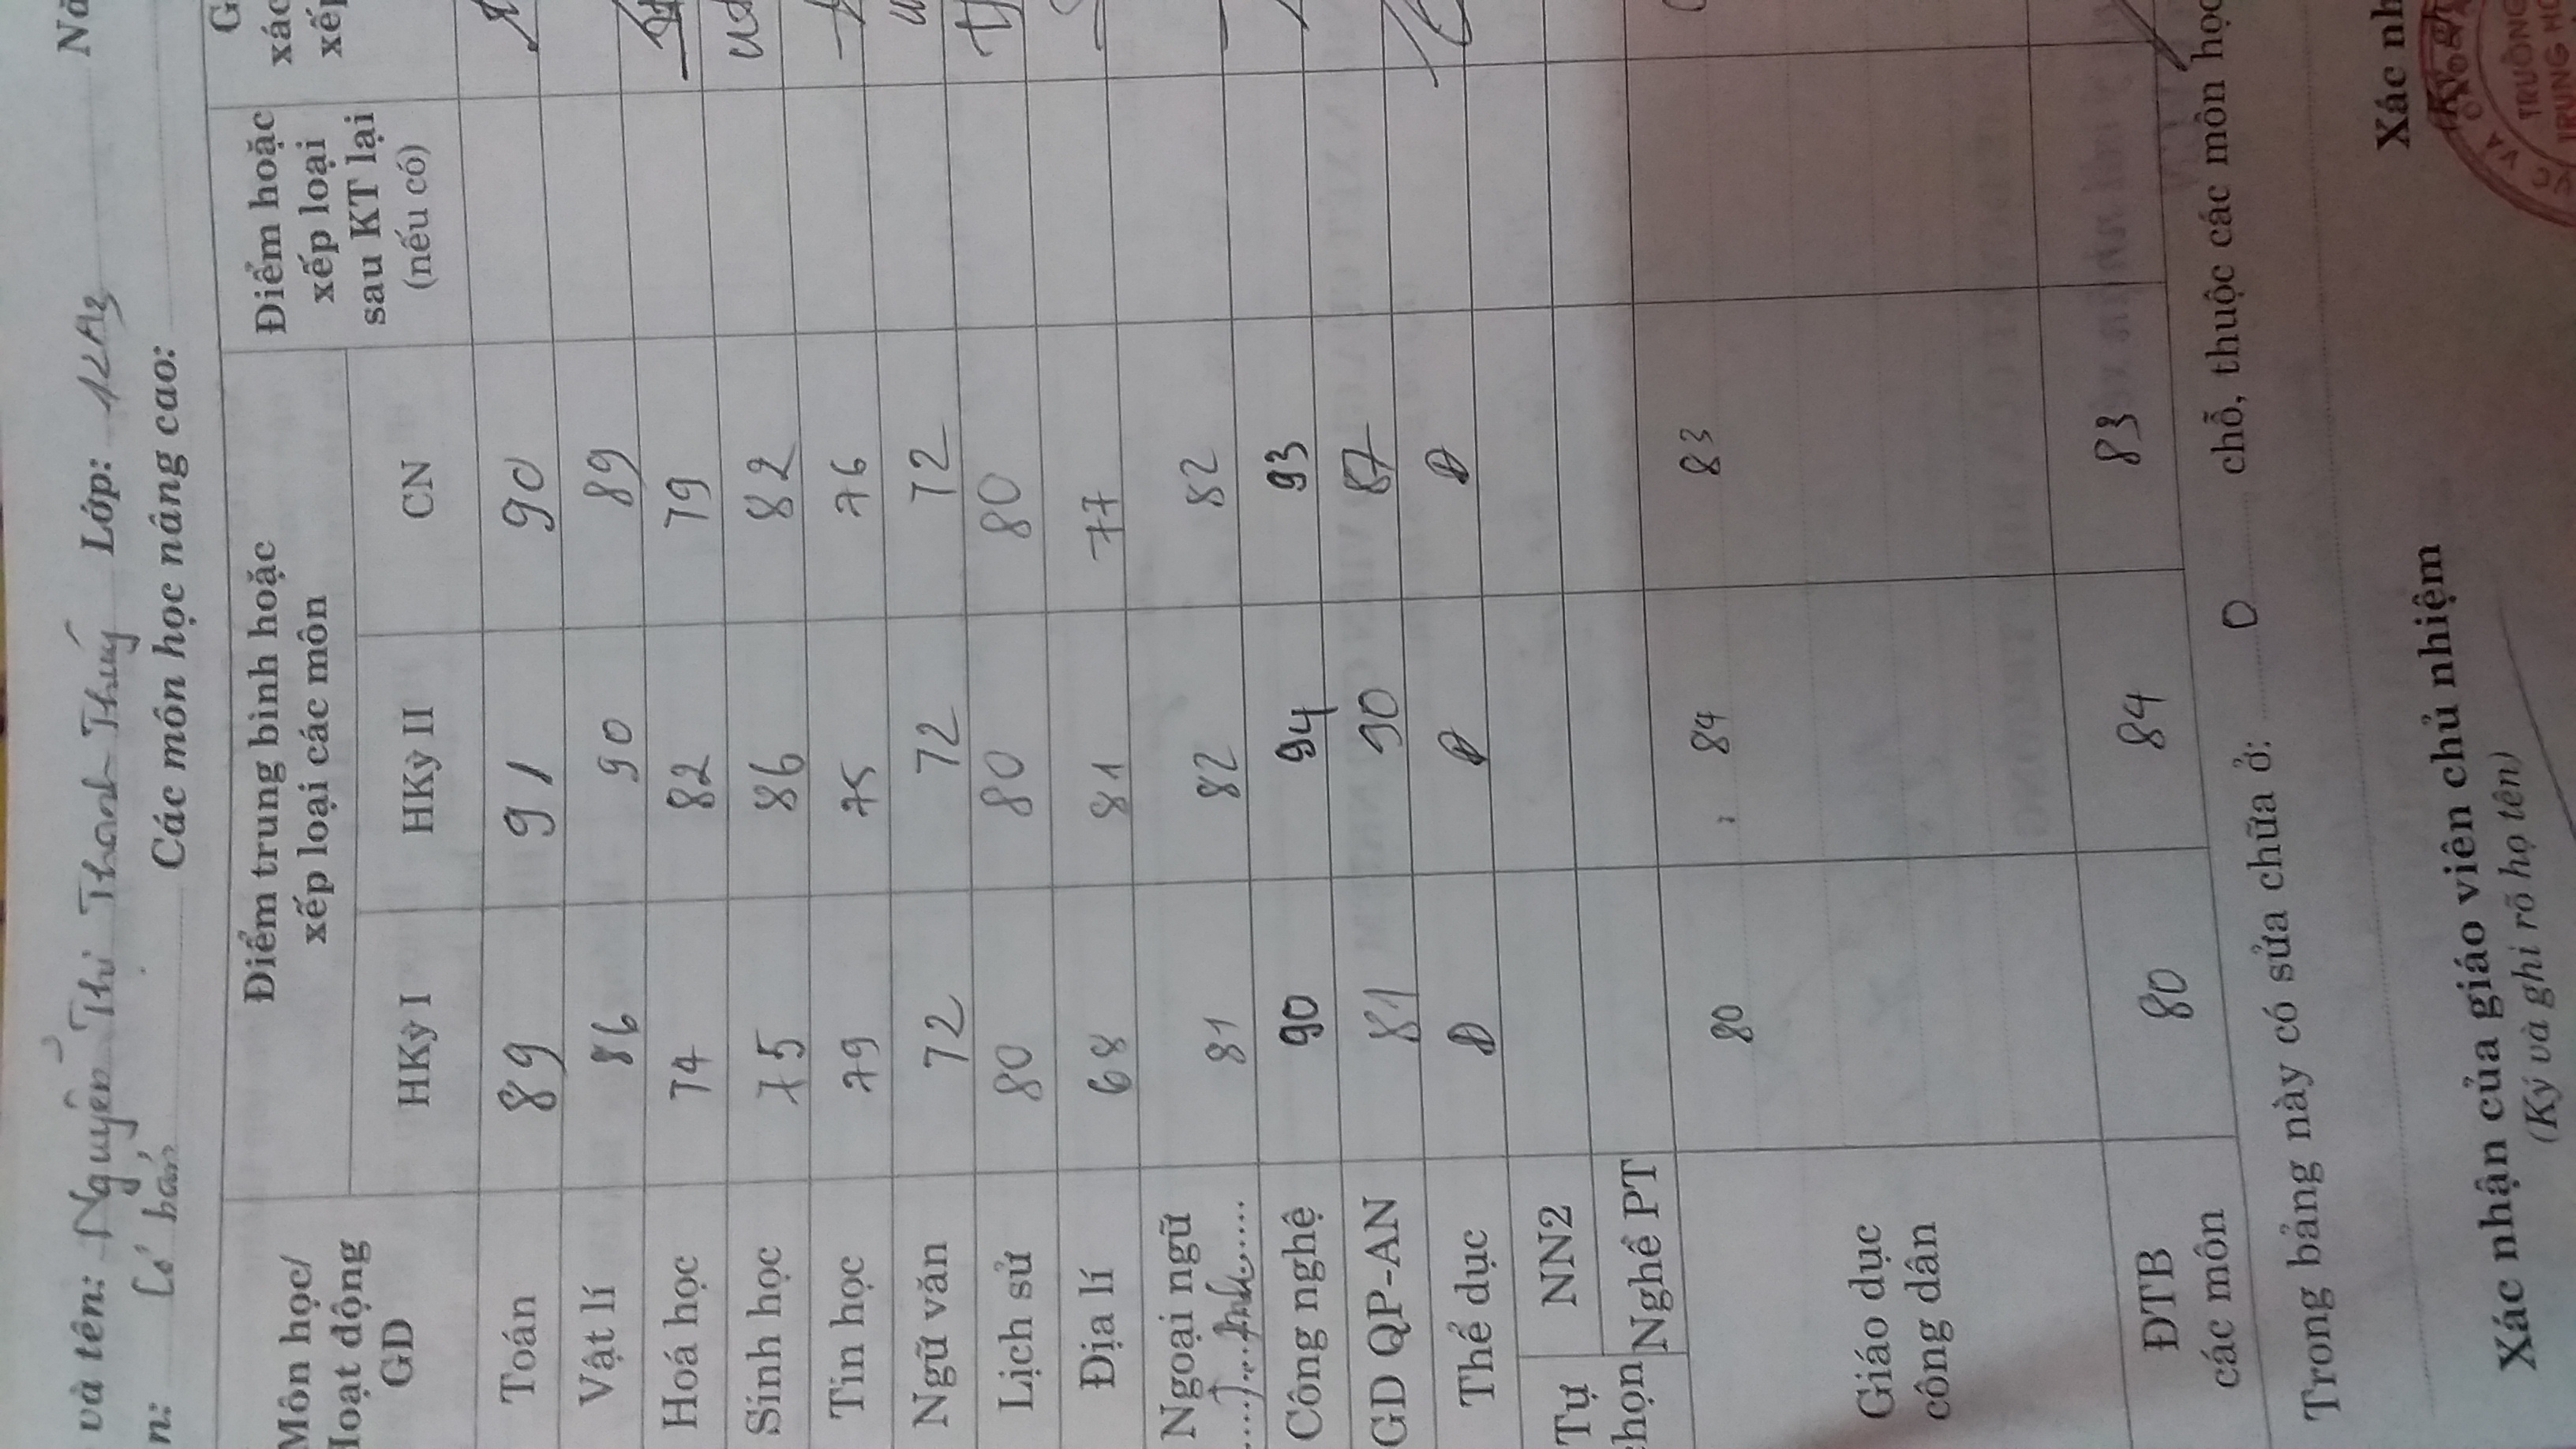 và tên: Nguyễn Thị Thanh Thuý Lớp: 12A3
n: Cơ bản Các môn học nâng cao:
Môn học/ Hoạt động GD
Điểm trung bình hoặc xếp loại các môn
Điểm hoặc xếp loại sau KT lại (nếu có)
HKỳ I HKỳ II CN
Toán 89 91 90
Vật lí 86 90 89
Hoá học 74 82 79
Sinh học 75 86 82
Tin học 79 75 76
Ngữ văn 72 72 72
Lịch sử 80 80 80
Địa lí 68 81 77
Ngoại ngữ T. Anh 81 82 82
Công nghệ 90 94 93
GD QP-AN 81 90 87
Thể dục Đ Đ Đ
Tự chọn NN2
Nghề PT
Giáo dục công dân 80 84 83
ĐTB các môn 80 84 83
Trong bảng này có sửa chữa ở: 0 chỗ, thuộc các môn học
Xác nhận của giáo viên chủ nhiệm
(Ký và ghi rõ họ tên)
Xác nh
TRƯỜNG